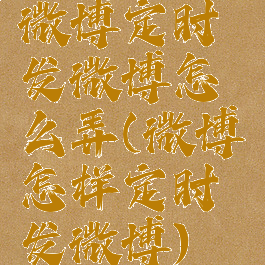 微博定时
发微博怎
么弄(微博
怎样定时
发微博)